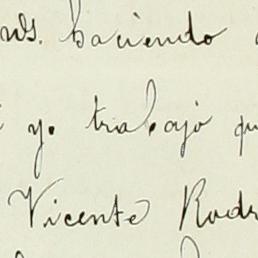 haciendo
y. trabajó
Vicente Rodr